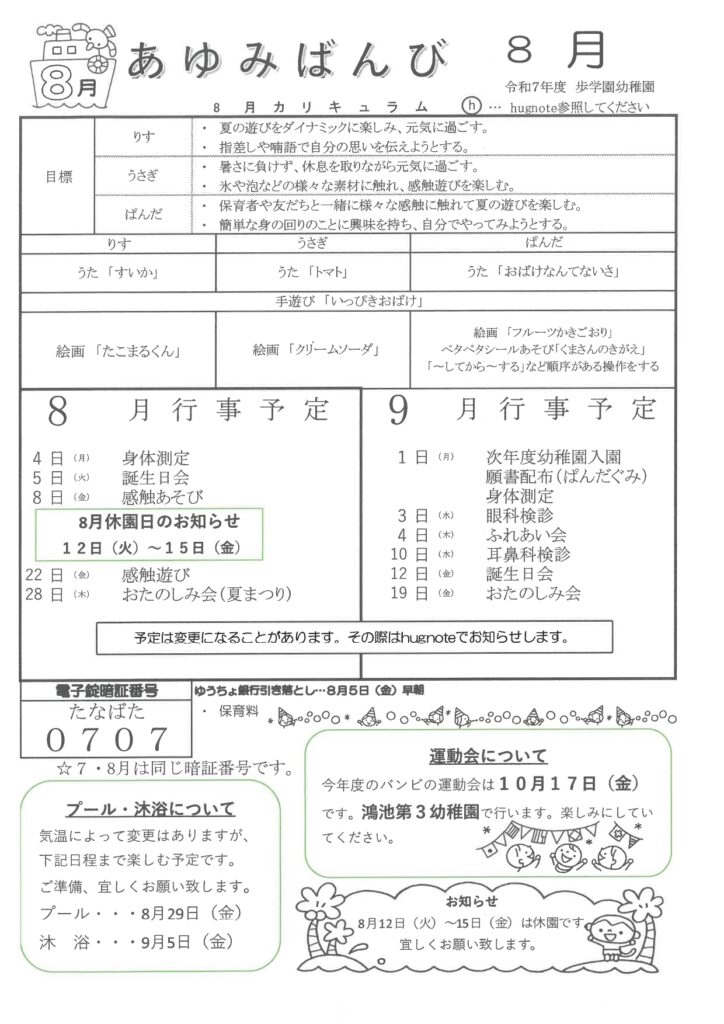 8月
あゆみばんび 8 月
令和7年度 歩学園幼稚園
8 月カリキュラム ⓗ … hugnote参照してください
目標
りす
・ 夏の遊びをダイナミックに楽しみ、元気に過ごす。
・ 指差しや喃語で自分の思いを伝えようとする。
うさぎ
・ 暑さに負けず、休息を取りながら元気に過ごす。
・ 氷や泡などの様々な素材に触れ、感触遊びを楽しむ。
ぱんだ
・ 保育者や友だちと一緒に様々な感触に触れて夏の遊びを楽しむ。
・ 簡単な身の回りのことに興味を持ち、自分でやってみようとする。
りす うさぎ ぱんだ
うた 「すいか」 うた 「トマト」 うた 「おばけなんてないさ」
手遊び 「いっぴきおばけ」
絵画 「たこまるくん」
絵画 「クリームソーダ」
絵画 「フルーツかきごおり」
ペタペタシールあそび「くまさんのきがえ」
「～してから～する」など順序がある操作をする
8 月行事予定
4 日 (月) 身体測定
5 日 (火) 誕生日会
8 日 (金) 感触あそび
8月休園日のお知らせ
12日（火）～15日（金）
22 日 (金) 感触遊び
28 日 (木) おたのしみ会（夏まつり）
9 月行事予定
1 日 (月) 次年度幼稚園入園
願書配布（ぱんだぐみ）
身体測定
3 日 (水) 眼科検診
4 日 (木) ふれあい会
10 日 (水) 耳鼻科検診
12 日 (金) 誕生日会
19 日 (金) おたのしみ会
予定は変更になることがあります。その際はhugnoteでお知らせします。
電子錠暗証番号
たなばた
0707
ゆうちょ銀行引き落とし…8月5日（金）早朝
・ 保育料
☆7・8月は同じ暗証番号です。
プール・沐浴について
気温によって変更はありますが、
下記日程まで楽しむ予定です。
ご準備、宜しくお願い致します。
プール・・・8月29日（金）
沐 浴・・・9月5日（金）
運動会について
今年度のバンビの運動会は10月17日（金）
です。鴻池第3幼稚園で行います。楽しみにしてい
てください。
お知らせ
8月12日（火）～15日（金）は休園です。
宜しくお願い致します。